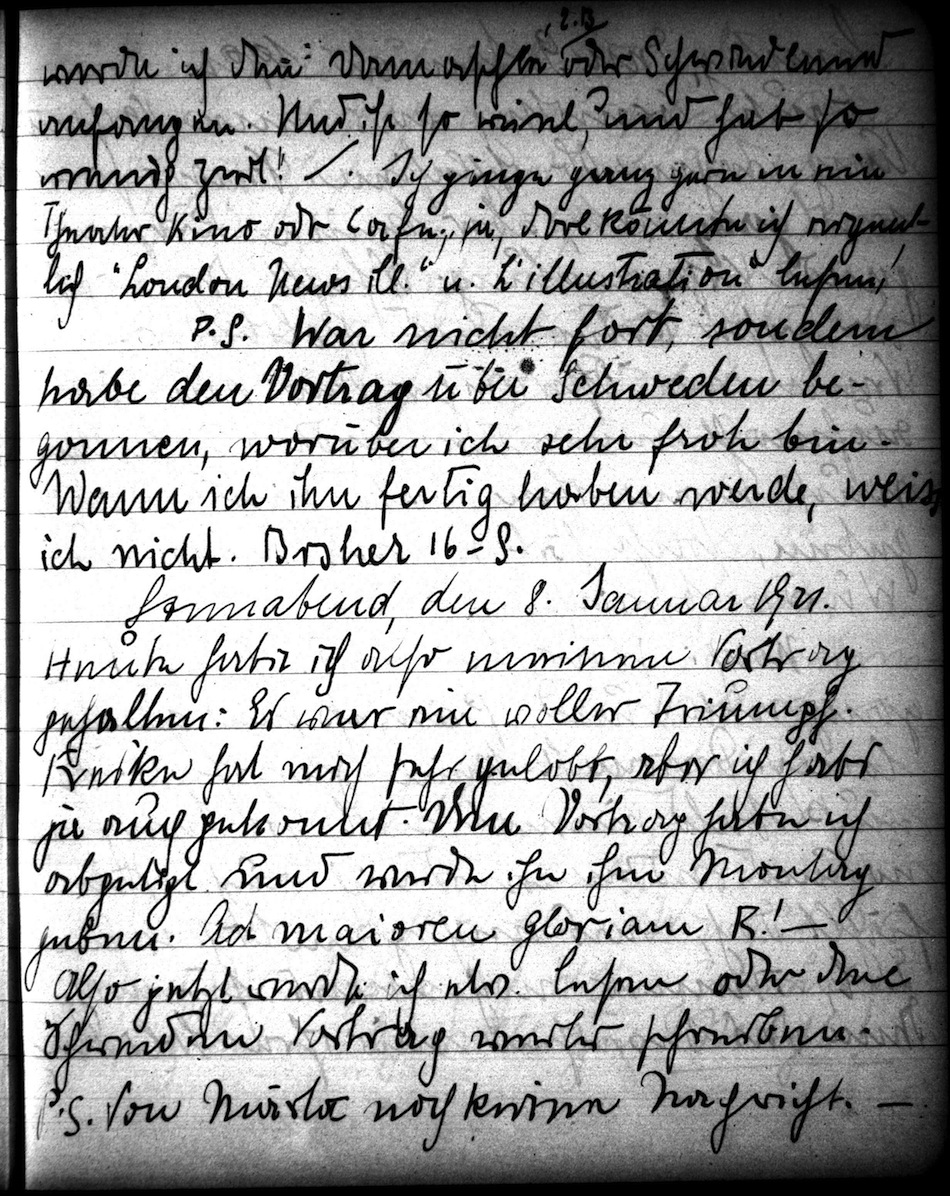 z.B.
werde ich den Damaschke oder Schweden und
anfangen. Und ist so viel, und hab so
wenig Zeit! Ich ginge ganz gern in ein
Theater Kino oder Cafe, ja, dort könnte ich eigent-
lich "London News ill." u. L'illustration" lesen,
P.S. War nicht fort, sondern
habe den Vortrag über Schweden be-
gonnen, worüber ich sehr froh bin.
Wann ich ihn fertig haben werde, weiss
ich nicht. Bisher 16 S.
Sonnabend, den 8. Januar 1921.
Heute habe ich also meinen Vortrag
gehalten: Es war ein voller Triumph.
hat mich sehr gelobt, aber ich habs
ja auch gekonnt. Den Vortrag habe ich
abgetipt und werde ihn ihm Montag
geben. Ad maiorem gloriam R.! —
Also jetzt werde ich etw. lesen oder den
Schweden Vortrag weiter schreiben.
P.S. Von noch keine Nachricht. —